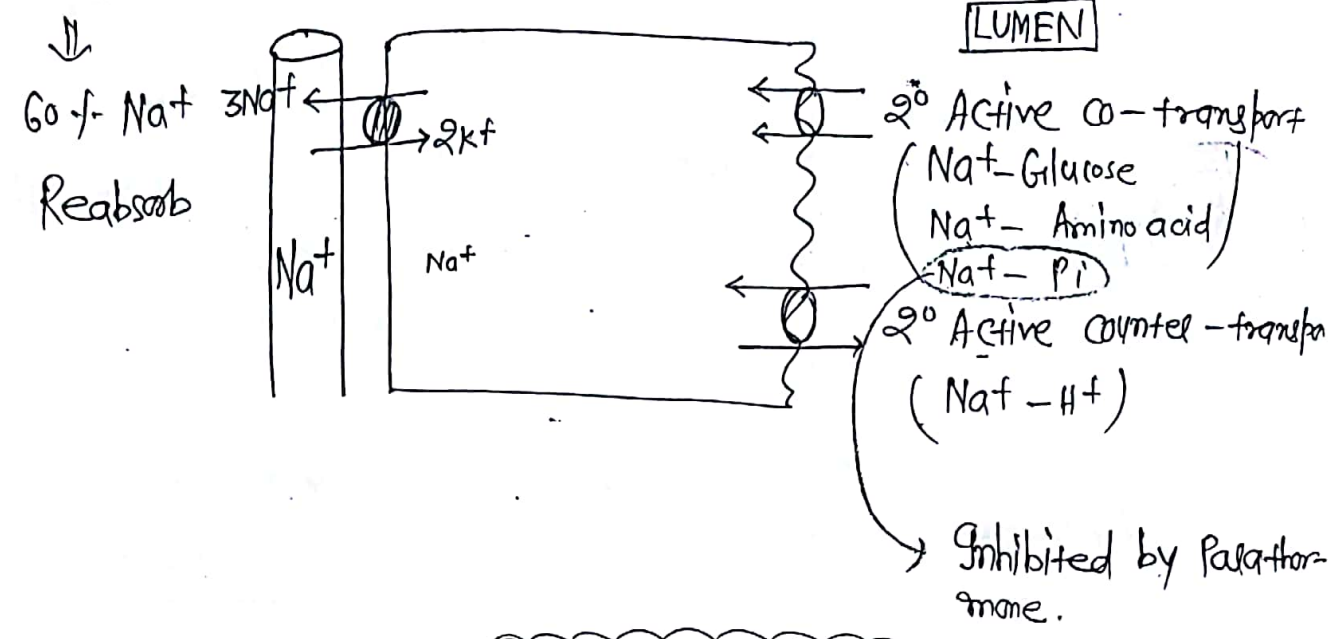 LUMEN
60 % Na+ 3Na+
2K+
Reabsorb
Na+
Na+
2° Active co-transport
(Na+-Glucose
Na+- Amino acid)
Na+- Pi
2° Active counter-transpo
(Na+-H+)
Inhibited by Parathor-
mone.